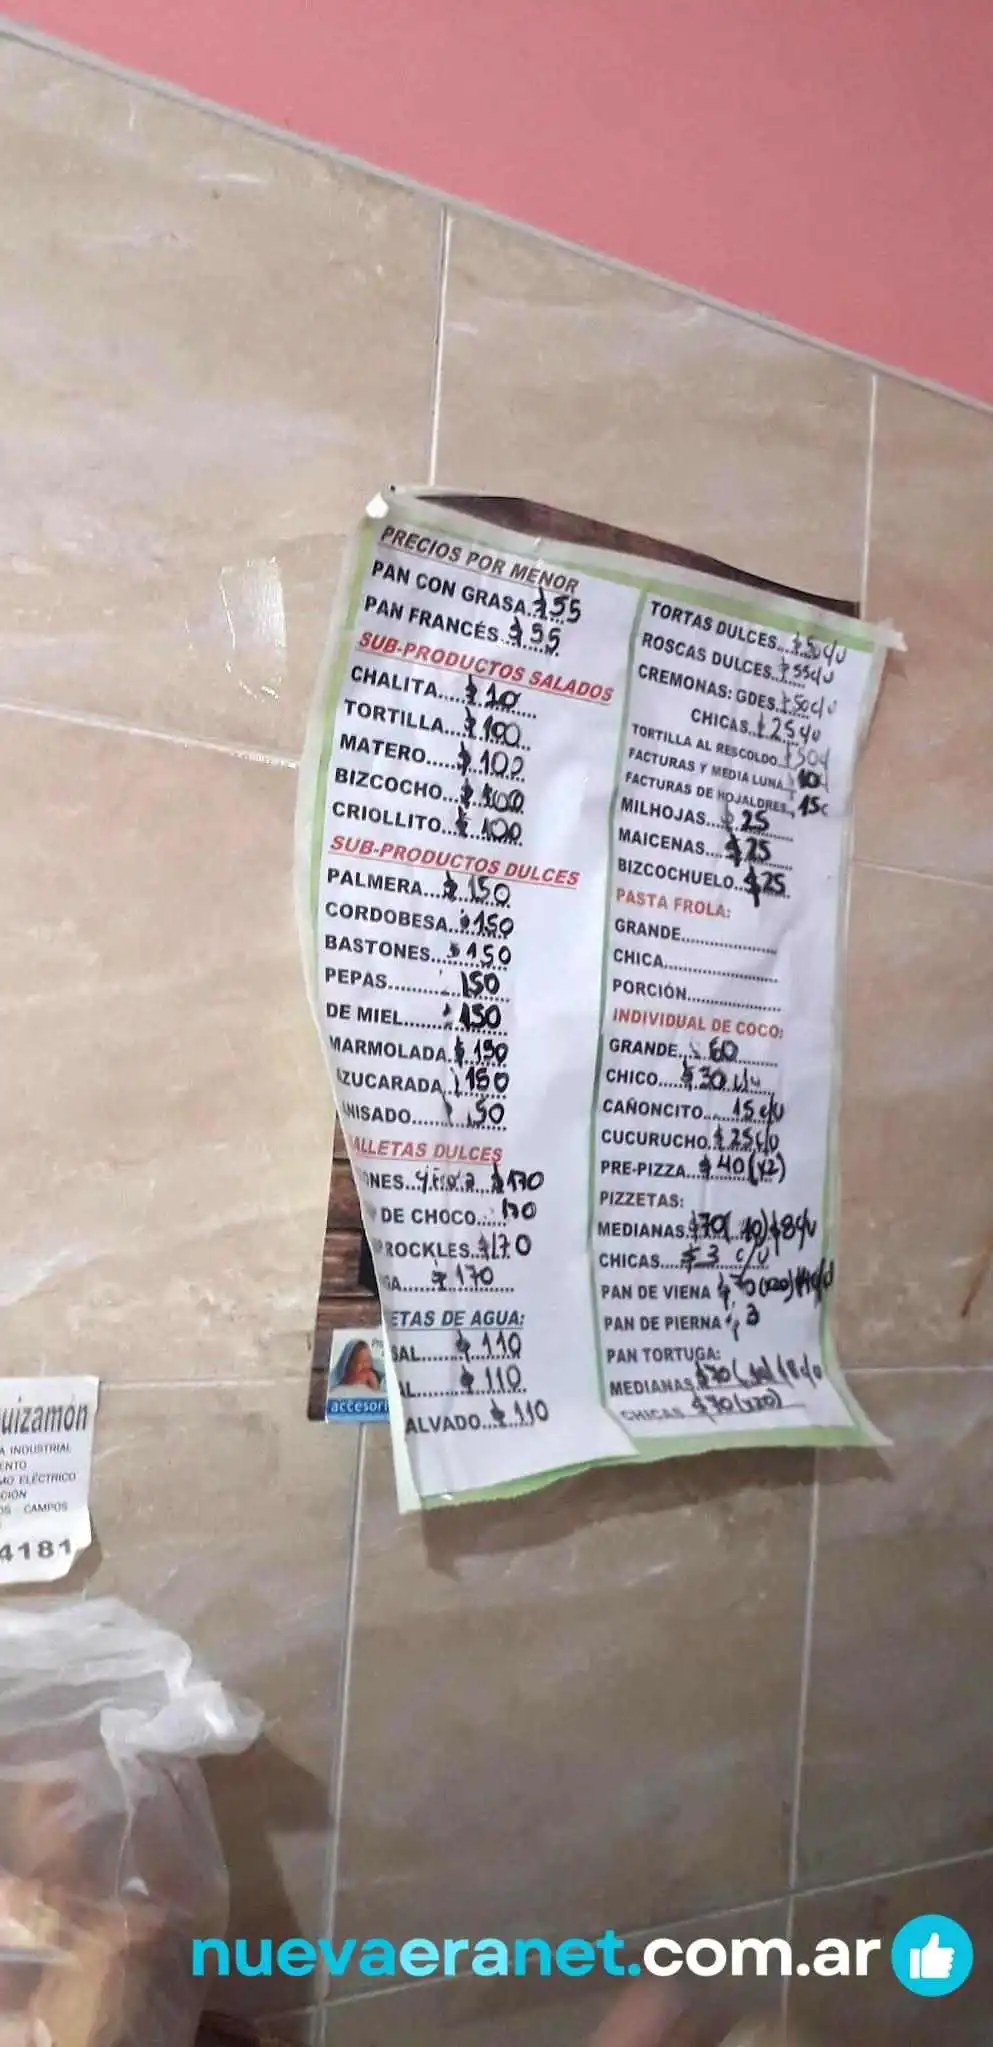 PRECIOS POR MENOR
PAN CON GRASA..$55
PAN FRANCÉS..$55
SUB-PRODUCTOS SALADOS
CHALITA....$10
TORTILLA...$100
MATERO.....$100
BIZCOCHO...$100
CRIOLLITO...$100
SUB-PRODUCTOS DULCES
PALMERA...$150
CORDOBESA..$150
BASTONES...$150
PEPAS.........150
DE MIEL.......150
MARMOLADA.$150
AZUCARADA.150
ANISADO.....150
ALLETAS DULCES
ONES... $170
DE CHOCO.....170
ROCKLES..$170
GA.....$170
ETAS DE AGUA:
SAL.....$110
AL.....$110
ALVADO...$110
TORTAS DULCES..$50c/u
ROSCAS DULCES.$55c/u
CREMONAS: GDES.$50c/u
CHICAS..$25c/u
TORTILLA AL RESCOLDO..$50
FACTURAS Y MEDIA LUNA.$10
FACTURAS DE HOJALDRES..15c
MILHOJAS...$25
MAICENAS...$25
BIZCOCHUELO..$25
PASTA FROLA:
GRANDE..................
CHICA.....................
PORCIÓN.................
INDIVIDUAL DE COCO:
GRANDE...60
CHICO....$30 c/u
CAÑONCITO....15 c/u
CUCURUCHO.$25c/u
PRE-PIZZA...$40(x2)
PIZZETAS:
MEDIANAS.$70( 10)$8c/u
CHICAS....$3 c/u
PAN DE VIENA $70(x20)
PAN DE PIERNA $3
PAN TORTUGA:
MEDIANAS.$70 8c/u
CHICAS $70(x20)
accesori
uizamón
A INDUSTRIAL
ENTO
MO ELÉCTRICO
CIÓN
OS CAMPOS
4181
nuevaeranet.com.ar